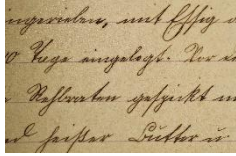 ngerieben, mit Essig
0 Tage eingelegt. Vor
Rehbraten gespickt
heißer Butter u.